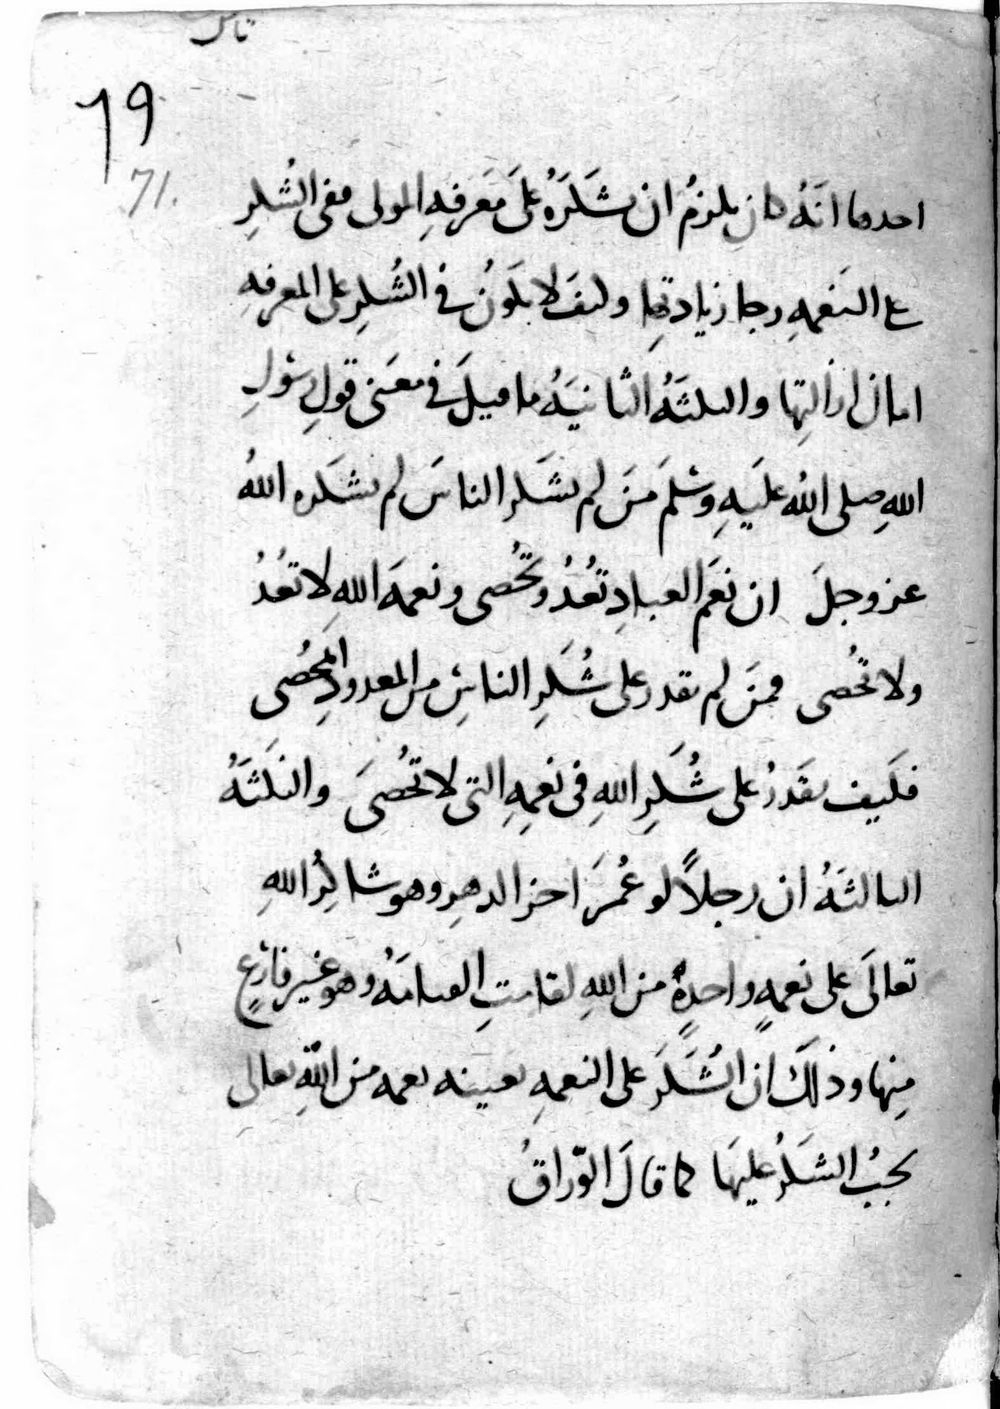 ٦٩
71.
احدها انَّهُ كان يلزمُ ان يشكرَهُ علَى مَعرَفهِ المولى ففى الشُكرِ
على النعمهِ رجا زيادتِها وكيف لا يكونُ فى الشُكرِ على المعرفهِ
امان ازالتِها والنكثَهُ الثانيَهُ ما قيلَ فى معنى قولِ رسُولِ
اللهِ صلى اللهُ عليَهِ وسلم مَنَ لم يشكر الناسَ لم يشكره اللهُ
عز وجلَ ان نعَم العبادِ تُعُدُ وتُحُصى ونعمهَ اللهِ لا تعُدُ
ولا تحُصى فمنَ لم يقدر على شُكرِ الناسِ من المعدودِ المحُصى
فكيف يقدرُ على شُكرِ اللهِ فى نعمِهِ التى لا تحُصِىَ والنكثَهُ
الثالثَهُ ان رجلاً لو عُمرَ اخر الدهرِ وهو شاكرُ اللهِ
تعالَى على نعمهٍ واحدهٍ من اللهِ لقامتِ القيامَهُ وهو غير فارغٍ
مِنها وذلك ان الشُكرَ على النعمهِ بعينه نعمه من اللهِ تعالى
يجبُ الشكرُ عليهَا كما قالَ الوّراقُ